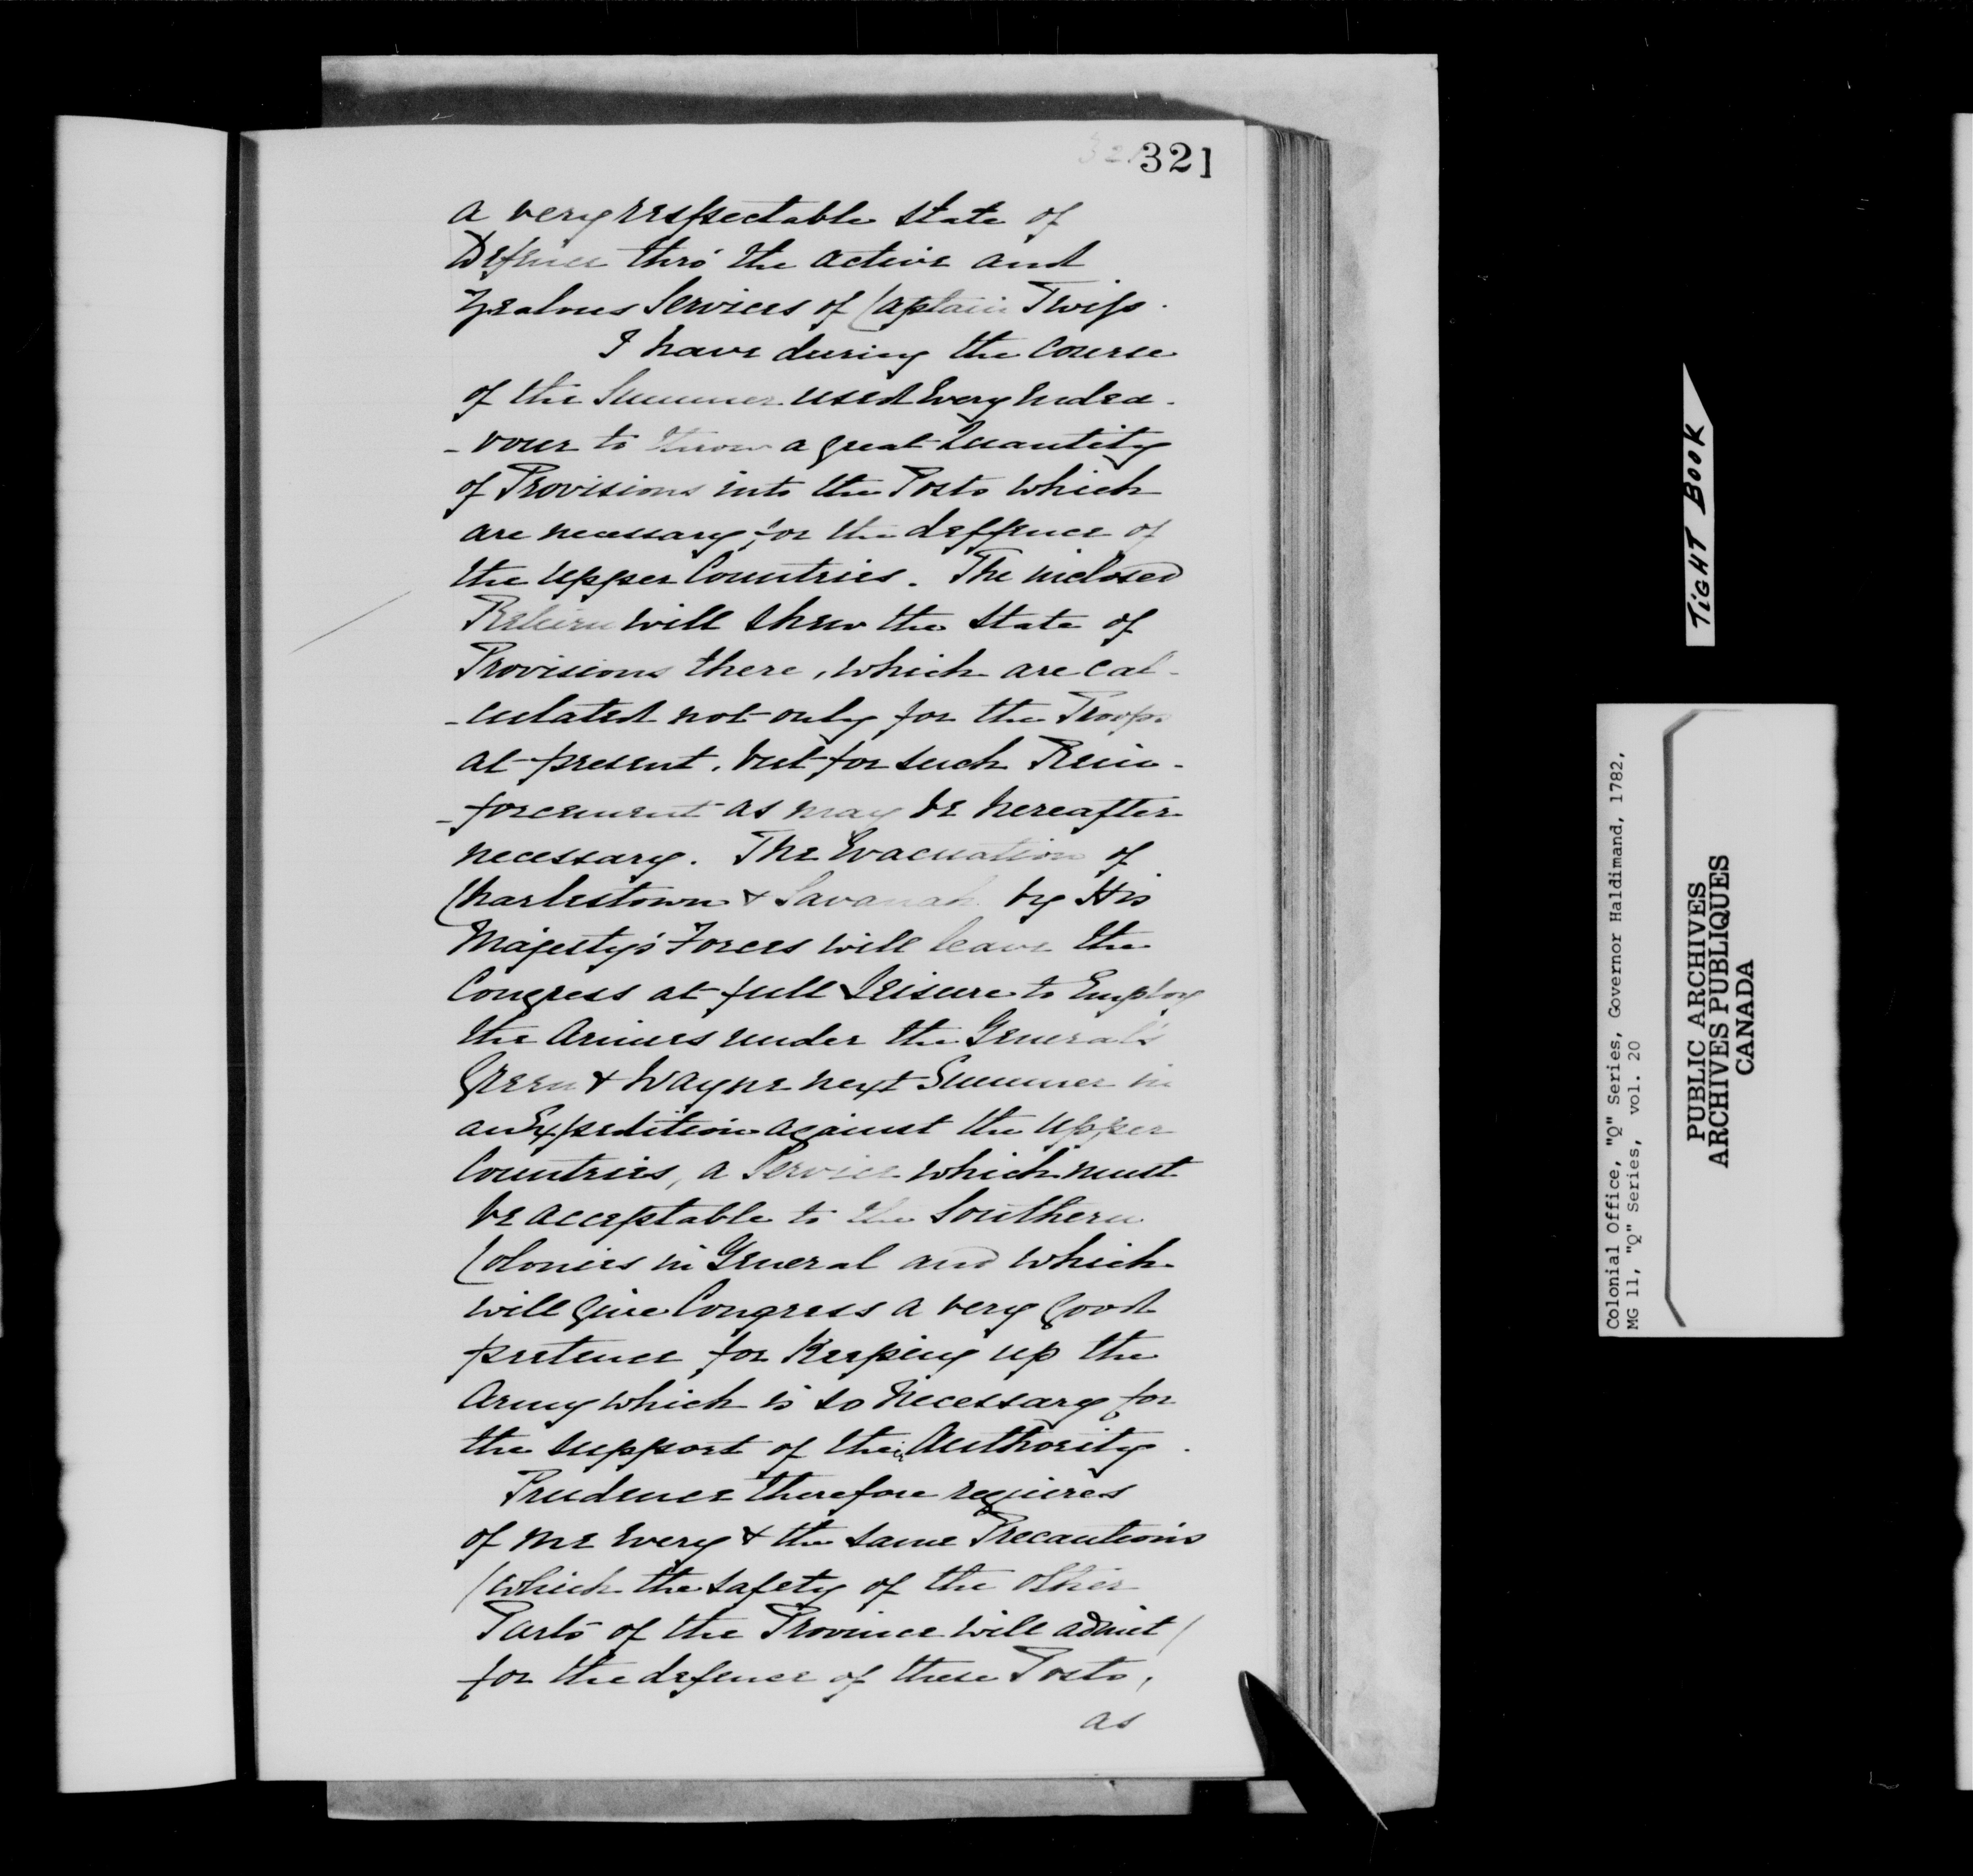 321
a very respectable State of
Defence thro' the active and
Zealous Services of Captain Twiss.
I have during the Course
of the Summer used Every Endea-
-vour to throw a great Quantity
of Provisions into the Posts which
are necessary for the deffence of
the Upper Countries. The inclosed
Return will shew the State of
Provisions there, which are cal-
-culated not only for the Troops
at present, but for such Rein-
-forcement as may be hereafter
necessary. The Evacuation of
Charlestown & Savanah by His
Majesty's Forces will leave the
Congress at full Leisure to Employ
the Armies under the Generals
Green & Wayne next Summer in
an Expedition against the Upper
Countries, a Service which must
be acceptable to the Southern
Colonies in General and which
will Give Congress a very Good
pretence for Keeping up the
Army which is so Necessary for
the support of their Authority.
Prudence therefore requires
of me Every & the same Precautions
(which the safety of the other
Parts of the Province will admit)
for the defence of these Posts,
as
TIGHT BOOK
Colonial Office, "Q" Series, Governor Haldimand, 1782,
MG 11, "Q" Series, vol. 20
PUBLIC ARCHIVES
ARCHIVES PUBLIQUES
CANADA